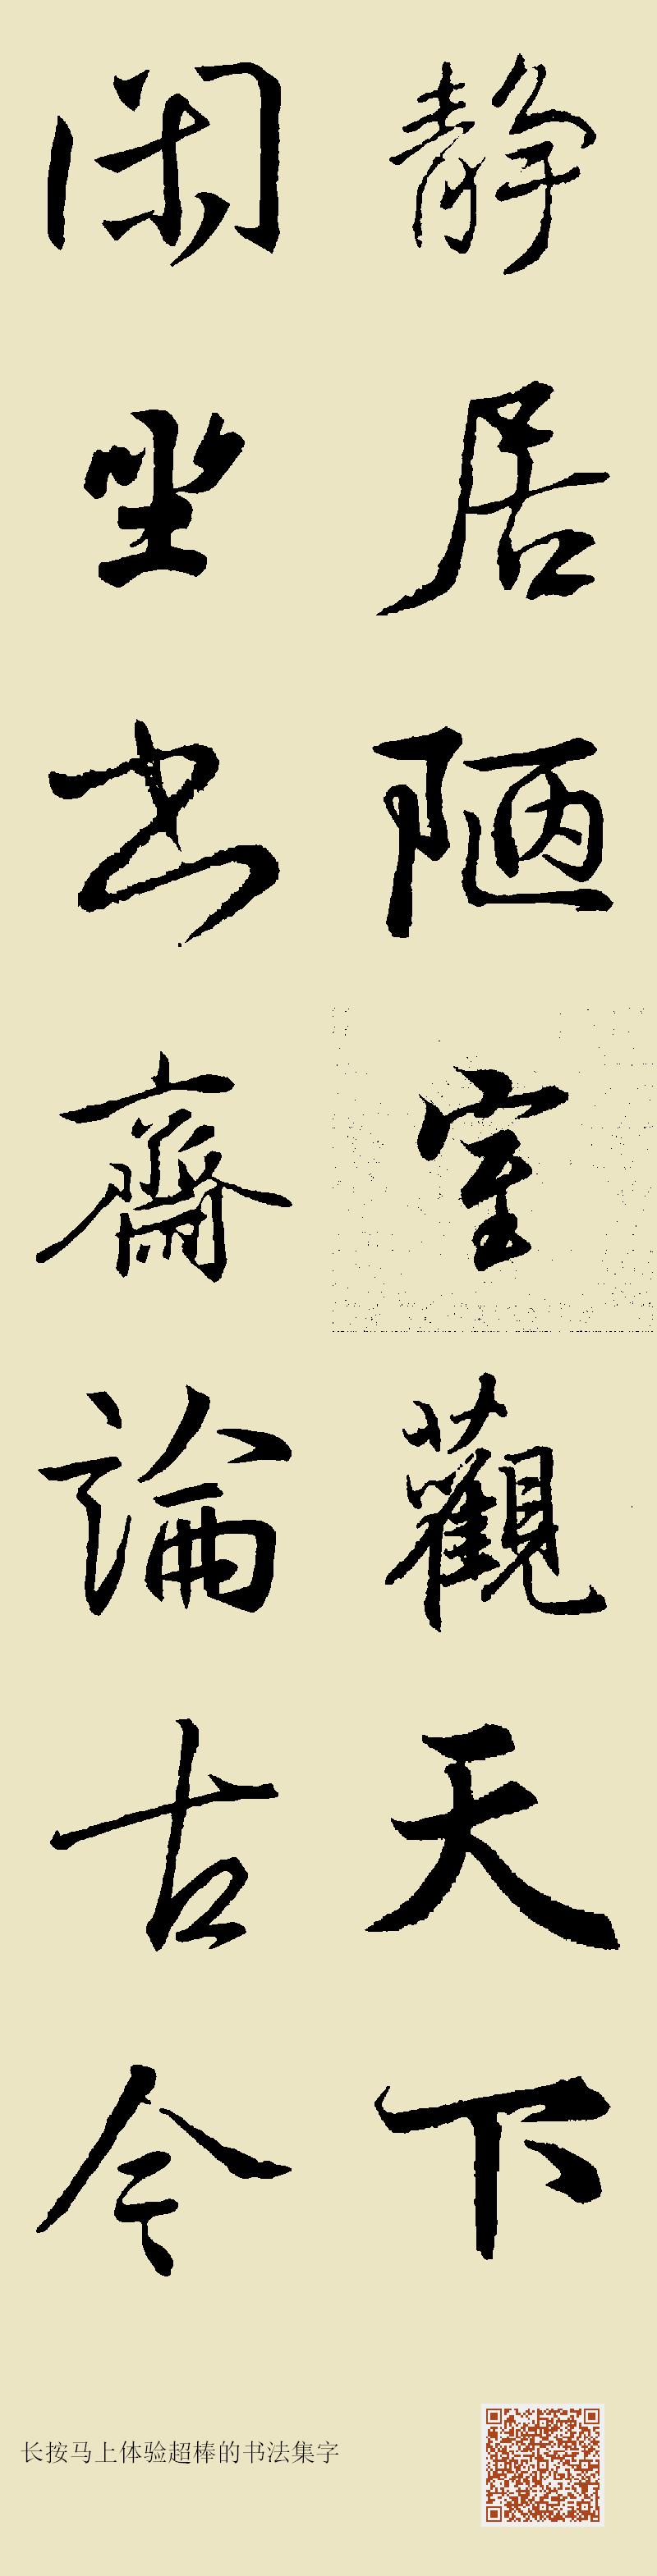 静居陋室觀天下
闲坐书齋論古今
长按马上体验超棒的书法集字